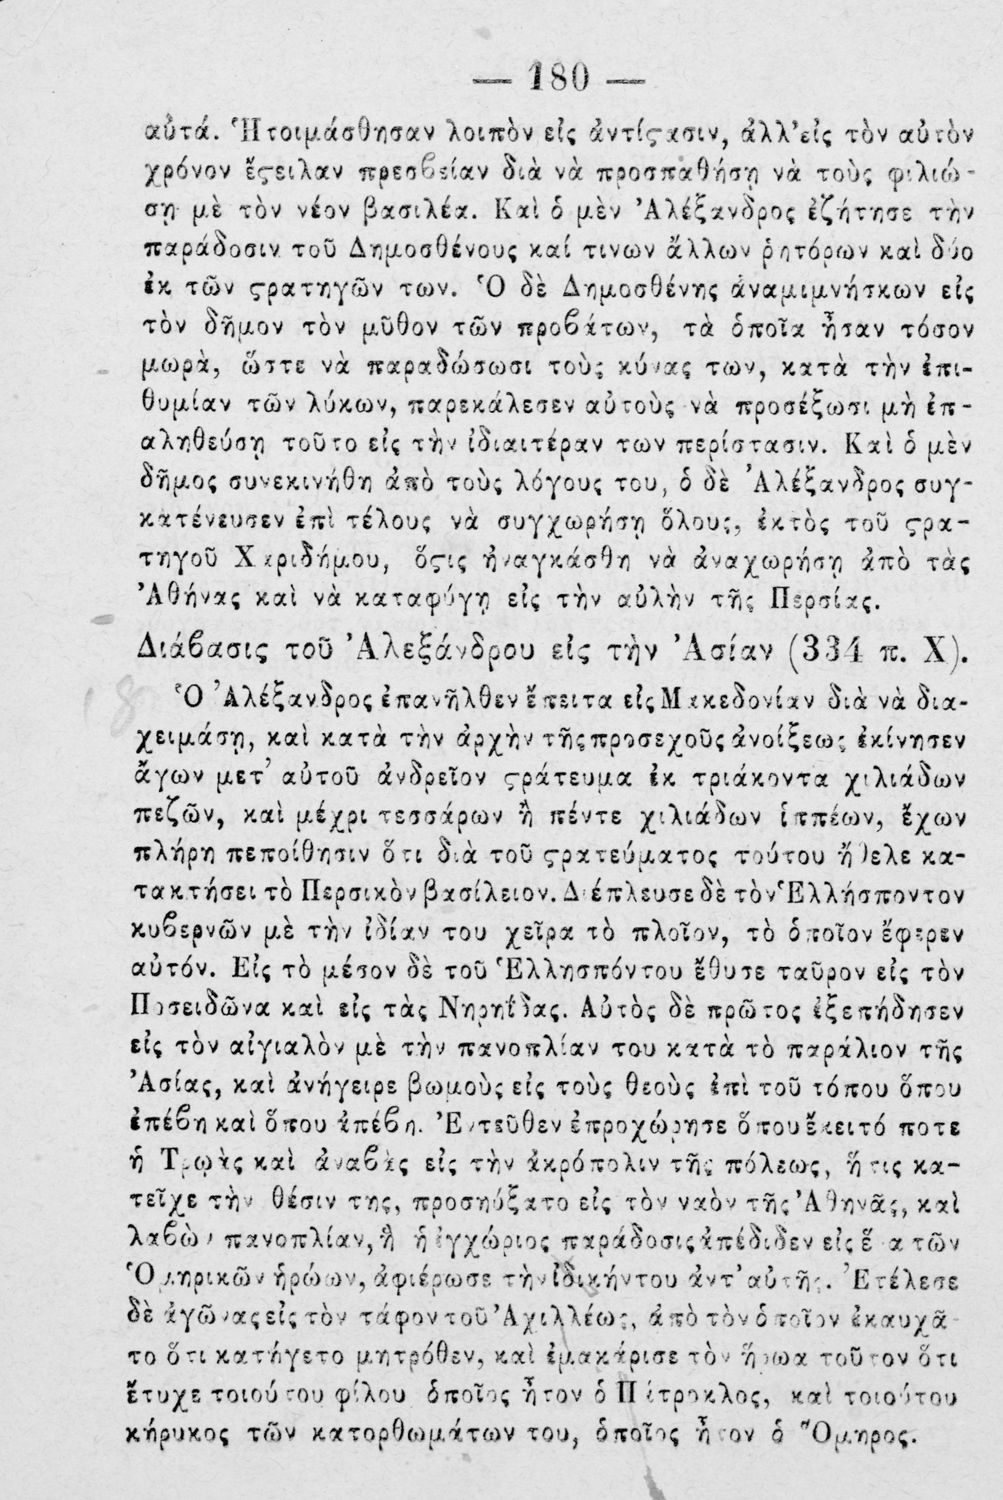 — 180 —
αὐτά. Ἡτοιμάσθησαν λοιπὸν εἰς ἀντίϛασιν, ἀλλ’εἰς τὸν αὐτὸν
χρόνον ἔϛειλαν πρεσβείαν διὰ νὰ προσπαθήσῃ νὰ τοὺς φιλιώ-
σῃ μὲ τὸν νέον βασιλέα. Καὶ ὁ μὲν Ἀλέξανδρος ἐζήτησε τὴν
παράδοσιν τοῦ Δημοσθένους καί τινων ἄλλων ῥητόρων καὶ δύο
ἐκ τῶν ϛρατηγῶν των. Ὁ δὲ Δημοσθένης ἀναμιμνήσκων εἰς
τὸν δῆμον τὸν μῦθον τῶν προβάτων, τὰ ὁποῖα ἦσαν τόσον
μωρὰ, ὥστε νὰ παραδώσωσι τοὺς κύνας των, κατὰ τὴν ἐπι-
θυμίαν τῶν λύκων, παρεκάλεσεν αὐτοὺς νὰ προσέξωσι μὴ ἐπ-
αληθεύσῃ τοῦτο εἰς τὴν ἰδιαιτέραν των περίστασιν. Καὶ ὁ μὲν
δῆμος συνεκινήθη ἀπὸ τοὺς λόγους του, ὁ δὲ Ἀλέξανδρος συγ-
κατένευσεν ἐπὶ τέλους νὰ συγχωρήσῃ ὅλους, ἐκτὸς τοῦ ϛρα-
τηγοῦ Χαριδήμου, ὅϛις ἠναγκάσθη νὰ ἀναχωρήσῃ ἀπὸ τὰς
Ἀθήνας καὶ νὰ καταφύγῃ εἰς τὴν αὐλὴν τῆς Περσίας.
Διάβασις τοῦ Ἀλεξάνδρου εἰς τὴν Ἀσίαν (334 π. Χ).
Ὁ Ἀλέξανδρος ἐπανῆλθεν ἔπειτα εἰς Μακεδονίαν διὰ νὰ δια-
χειμάσῃ, καὶ κατὰ τὴν ἀρχὴν τῆς προσεχοῦς ἀνοίξεως ἐκίνησεν
ἄγων μετ’ αὐτοῦ ἀνδρεῖον ϛράτευμα ἐκ τριάκοντα χιλιάδων
πεζῶν, καὶ μέχρι τεσσάρων ἢ πέντε χιλιάδων ἱππέων, ἔχων
πλήρη πεποίθησιν ὅτι διὰ τοῦ ϛρατεύματος τούτου ἤθελε κα-
τακτήσει τὸ Περσικὸν βασίλειον. Διέπλευσε δὲ τὸν Ἑλλήσποντον
κυβερνῶν μὲ τὴν ἰδίαν του χεῖρα τὸ πλοῖον, τὸ ὁποῖον ἔφερεν
αὐτόν. Εἰς τὸ μέσον δὲ τοῦ Ἑλλησπόντου ἔθυσε ταῦρον εἰς τὸν
Ποσειδῶνα καὶ εἰς τὰς Νηρηΐδας. Αὐτὸς δὲ πρῶτος ἐξεπήδησεν
εἰς τὸν αἰγιαλὸν μὲ τὴν πανοπλίαν του κατὰ τὸ παράλιον τῆς
Ἀσίας, καὶ ἀνήγειρε βωμοὺς εἰς τοὺς θεοὺς ἐπὶ τοῦ τόπου ὅπου
ἐπέβη καὶ ὅπου ἀπέβη. Ἐντεῦθεν ἐπροχώρησε ὅπου ἔκειτό ποτε
ἡ Τρῳὰς καὶ ἀναβὰς εἰς τὴν ἀκρόπολιν τῆς πόλεως, ἥτις κα-
τεῖχε τὴν θέσιν της, προσηύξατο εἰς τὸν ναὸν τῆς Ἀθηνᾶς, καὶ
λαβὼν πανοπλίαν, ἣν ἡ ἐγχώριος παράδοσις ἀπέδιδεν εἰς ἕνα τῶν
Ὁμηρικῶν ἡρώων, ἀφιέρωσε τὴν ἰδικήν του ἀντ’ αὐτῆς. Ἐτέλεσε
δὲ ἀγῶνας εἰς τὸν τάφον τοῦ Ἀχιλλέως, ἀπὸ τὸν ὁποῖον ἐκαυχᾶ-
το ὅτι κατήγετο μητρόθεν, καὶ ἐμακάρισε τὸν ἥρωα τοῦτον ὅτι
ἔτυχε τοιούτου φίλου ὁποῖος ἦτον ὁ Πάτροκλος, καὶ τοιούτου
κήρυκος τῶν κατορθωμάτων του, ὁποῖος ἦτον ὁ Ὅμηρος.